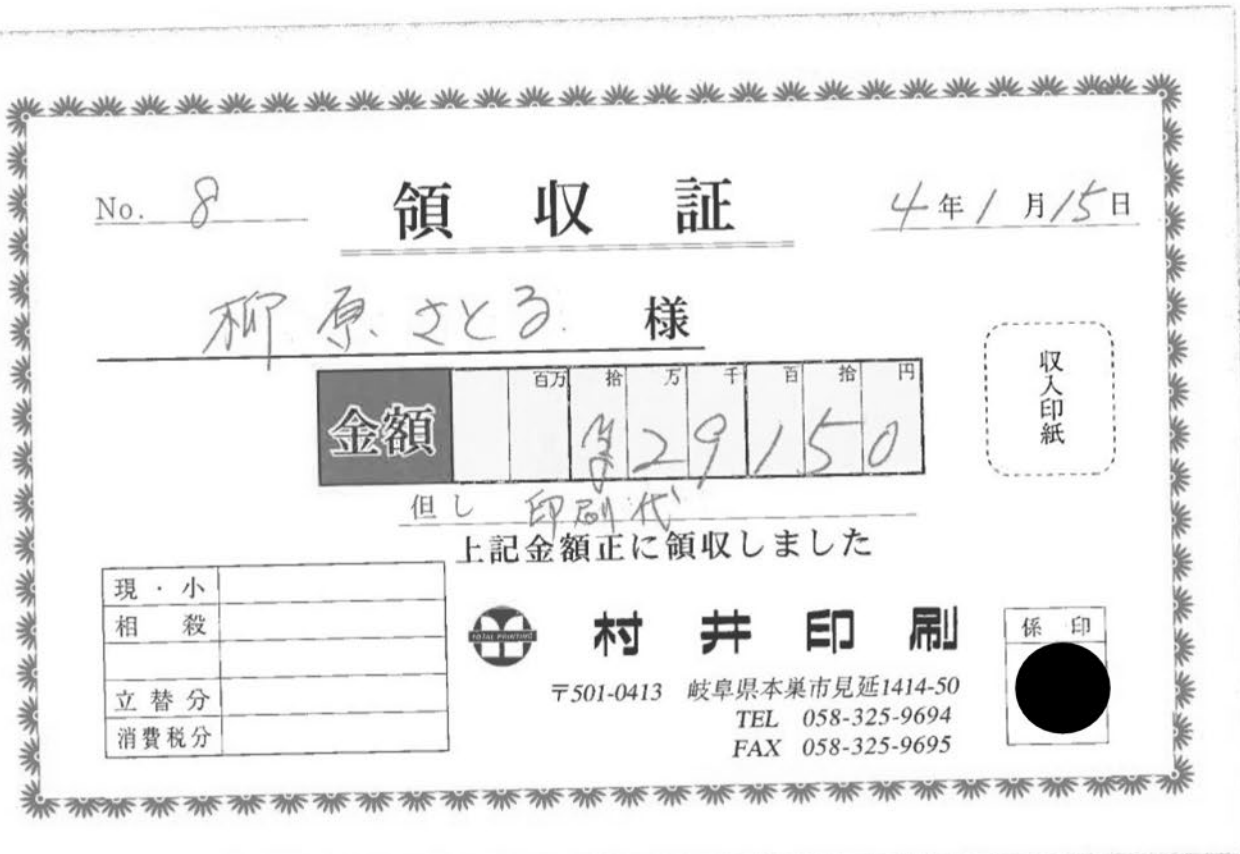 No. 8
領収証
4年1月15日
柳原さとる 様
収入印紙
金額
百万 拾 万 千 百 拾 円
¥29150
但し 印刷代
上記金額正に領収しました
現・小
相殺
立替分
消費税分
TOTAL PRINTING
村井印刷
〒501-0413 岐阜県本巣市見延1414-50
TEL 058-325-9694
FAX 058-325-9695
係印